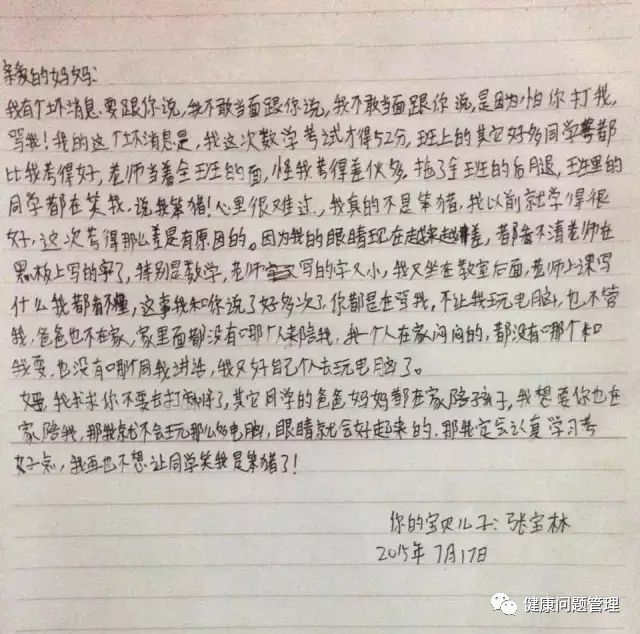 亲爱的妈妈:
我有个坏消息要跟你说,我不敢当面跟你说,我不敢当面跟你说,是因为怕你打我,
骂我!我的这个坏消息是,我这次数学考试才得52分,班上的其它好多同学都
比我考得好,老师当着全班的面,怪我考得差伙多,拖了全班的后腿,班里的
同学都在笑我,说我笨猪!心里很难过,我真的不是笨猪,我以前就学得很
好,这次考得那么差是有原因的。因为我的眼睛现在越来越差,都看不清老师在
黑板上写的字了,特别是数学,老师写的字又小,我又坐在教室后面,老师上课写
什么我都看不懂,这事我和你说了好多次了你都是在骂我,不让我玩电脑,也不管
我,爸爸也不在家,家里面都没有哪个人来陪我,我一个人在家闷闷的,都没有哪个和
我耍,也没有哪个同我讲话,我又好自己个人去玩电脑了。
妈,我求求你不要去打麻将了,其它同学的爸爸妈妈都在家陪孩子,我想要你也在
家陪我,那我就不会玩那么多电脑,眼睛就会好起来的,那我定会认真学习考
好点,我再也不想让同学笑我是笨猪了!
你的宝贝儿子:张宝林
2015年7月17日
健康问题管理